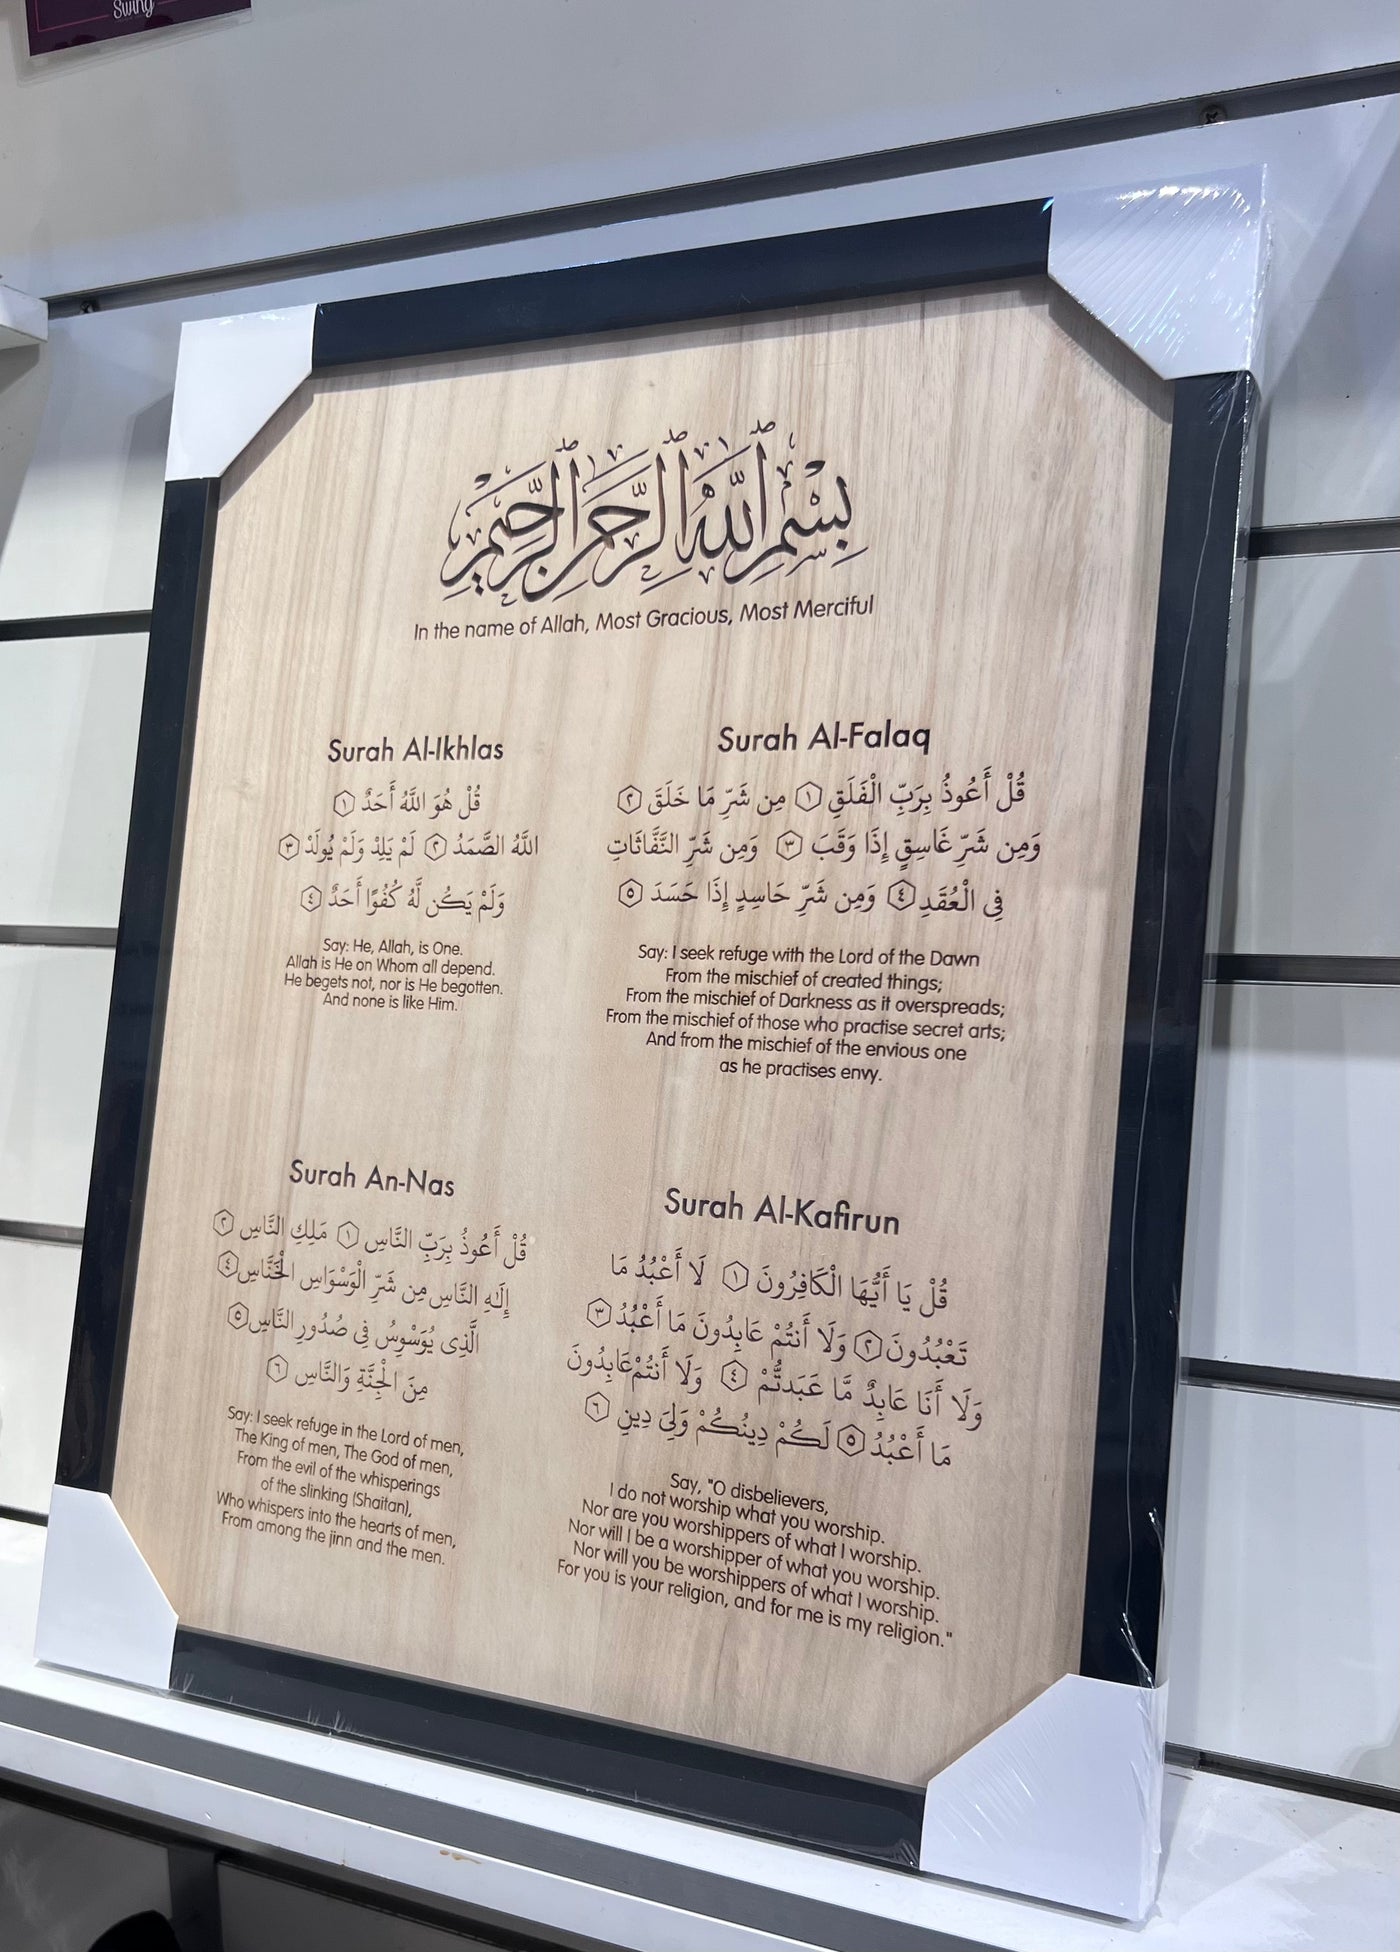 Swing
بِسْمِ ٱللَّهِ ٱلرَّحْمَٰنِ ٱلرَّحِيمِ
In the name of Allah, Most Gracious, Most Merciful
Surah Al-Ikhlas
قُلْ هُوَ اللَّهُ أَحَدٌ ١
اللَّهُ الصَّمَدُ ٢ لَمْ يَلِدْ وَلَمْ يُولَدْ ٣
وَلَمْ يَكُن لَّهُ كُفُوًا أَحَدٌ ٤
Say: He, Allah, is One.
Allah is He on Whom all depend.
He begets not, nor is He begotten.
And none is like Him.
Surah Al-Falaq
قُلْ أَعُوذُ بِرَبِّ الْفَلَقِ ١ مِن شَرِّ مَا خَلَقَ ٢
وَمِن شَرِّ غَاسِقٍ إِذَا وَقَبَ ٣ وَمِن شَرِّ النَّفَّاثَاتِ
فِي الْعُقَدِ ٤ وَمِن شَرِّ حَاسِدٍ إِذَا حَسَدَ ٥
Say: I seek refuge with the Lord of the Dawn
From the mischief of created things;
From the mischief of Darkness as it overspreads;
From the mischief of those who practise secret arts;
And from the mischief of the envious one
as he practises envy.
Surah An-Nas
قُلْ أَعُوذُ بِرَبِّ النَّاسِ ١ مَلِكِ النَّاسِ ٢
إِلَٰهِ النَّاسِ مِن شَرِّ الْوَسْوَاسِ الْخَنَّاسِ ٤
الَّذِى يُوَسْوِسُ فِى صُدُورِ النَّاسِ ٥
مِنَ الْجِنَّةِ وَالنَّاسِ ٦
Say: I seek refuge in the Lord of men,
The King of men, The God of men,
From the evil of the whisperings
of the slinking (Shaitan),
Who whispers into the hearts of men,
From among the jinn and the men.
Surah Al-Kafirun
قُلْ يَا أَيُّهَا الْكَافِرُونَ ١ لَا أَعْبُدُ مَا
تَعْبُدُونَ ٢ وَلَا أَنتُمْ عَابِدُونَ مَا أَعْبُدُ ٣
وَلَا أَنَا عَابِدٌ مَّا عَبَدتُّمْ ٤ وَلَا أَنتُمْ عَابِدُونَ
مَا أَعْبُدُ ٥ لَكُمْ دِينُكُمْ وَلِىَ دِينِ ٦
Say, "O disbelievers,
I do not worship what you worship.
Nor are you worshippers of what I worship.
Nor will I be a worshipper of what you worship.
Nor will you be worshippers of what I worship.
For you is your religion, and for me is my religion."